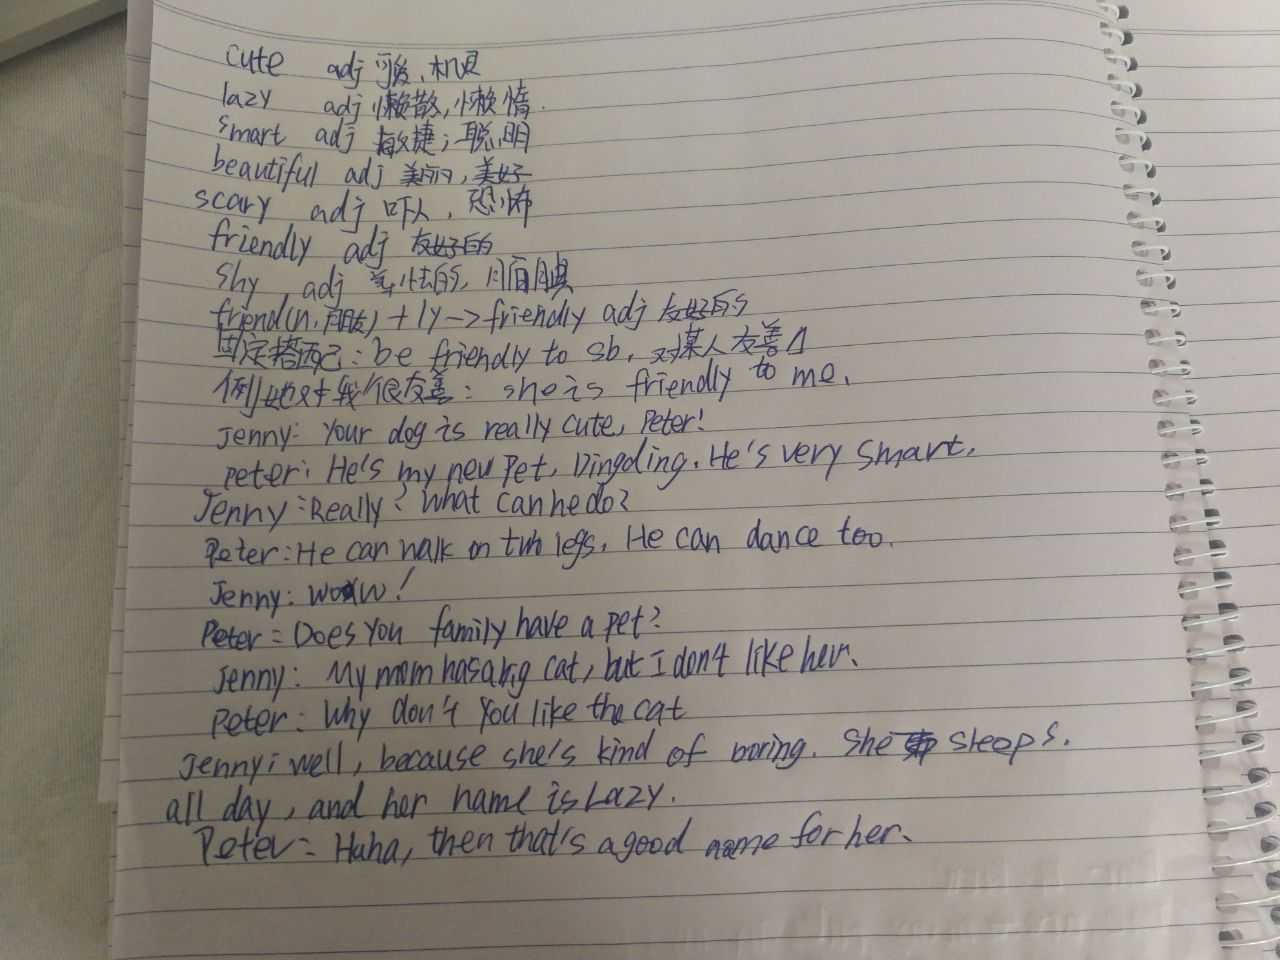 cute adj 可爱、机灵
lazy adj 懒散,懒惰.
smart adj 敏捷;聪明
beautiful adj 美丽,美好
scary adj 吓人,恐怖
friendly adj 友好的
shy adj 羞怯的,腼腆
friend(n.朋友)+ly->friendly adj 友好的
固定搭配:be friendly to sb. 对某人友善
例她对我很友善:she is friendly to me.
Jenny: Your dog is really cute, Peter!
Peter: He's my new Pet, Dingding. He's very smart.
Jenny: Really? What can he do?
Peter: He can walk on two legs. He can dance too.
Jenny: wow!
Peter: Does You family have a pet?
Jenny: My mom has a big cat, but I don't like her.
Peter: Why don't You like the cat
Jenny: well, because she's kind of boring. She sleeps.
all day, and her name is Lazy.
Peter: Haha, then that's a good name for her.